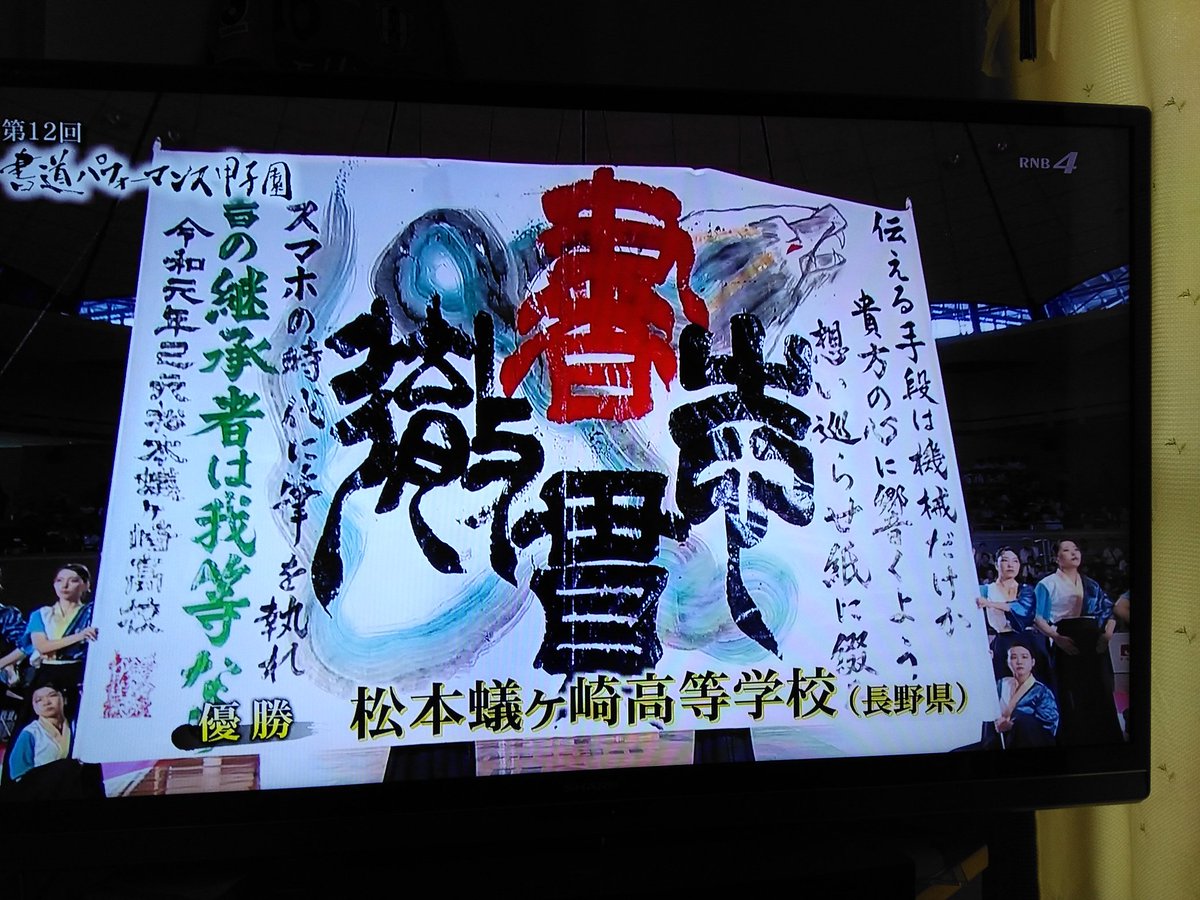 第12回
書道パフォーマンス甲子園
RNB 4
伝える手段は機械だけか
貴方の心に響くよう
想い巡らせ紙に綴
書
スマホの時代に筆を執れ
の継承者は我等な
令和元年己亥松本蟻ヶ崎高校
優勝
松本蟻ヶ崎高等学校(長野県)